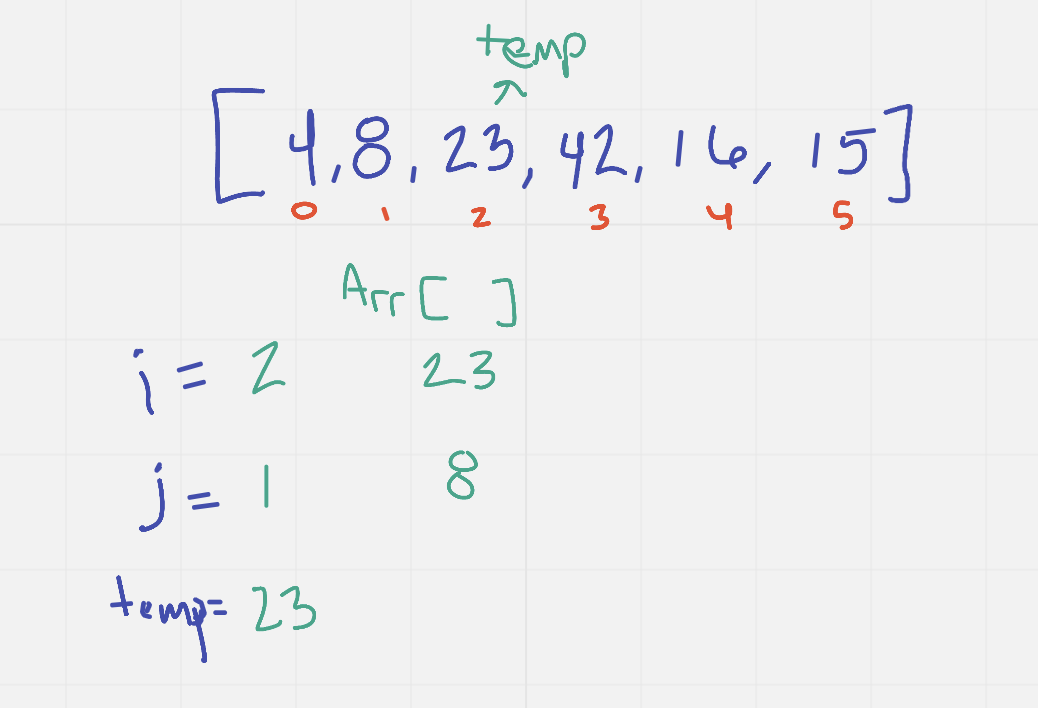 temp
[4, 8, 23, 42, 16, 15]
0 1 2 3 4 5
Arr[ ]
i = 2 23
j = 1 8
temp= 23